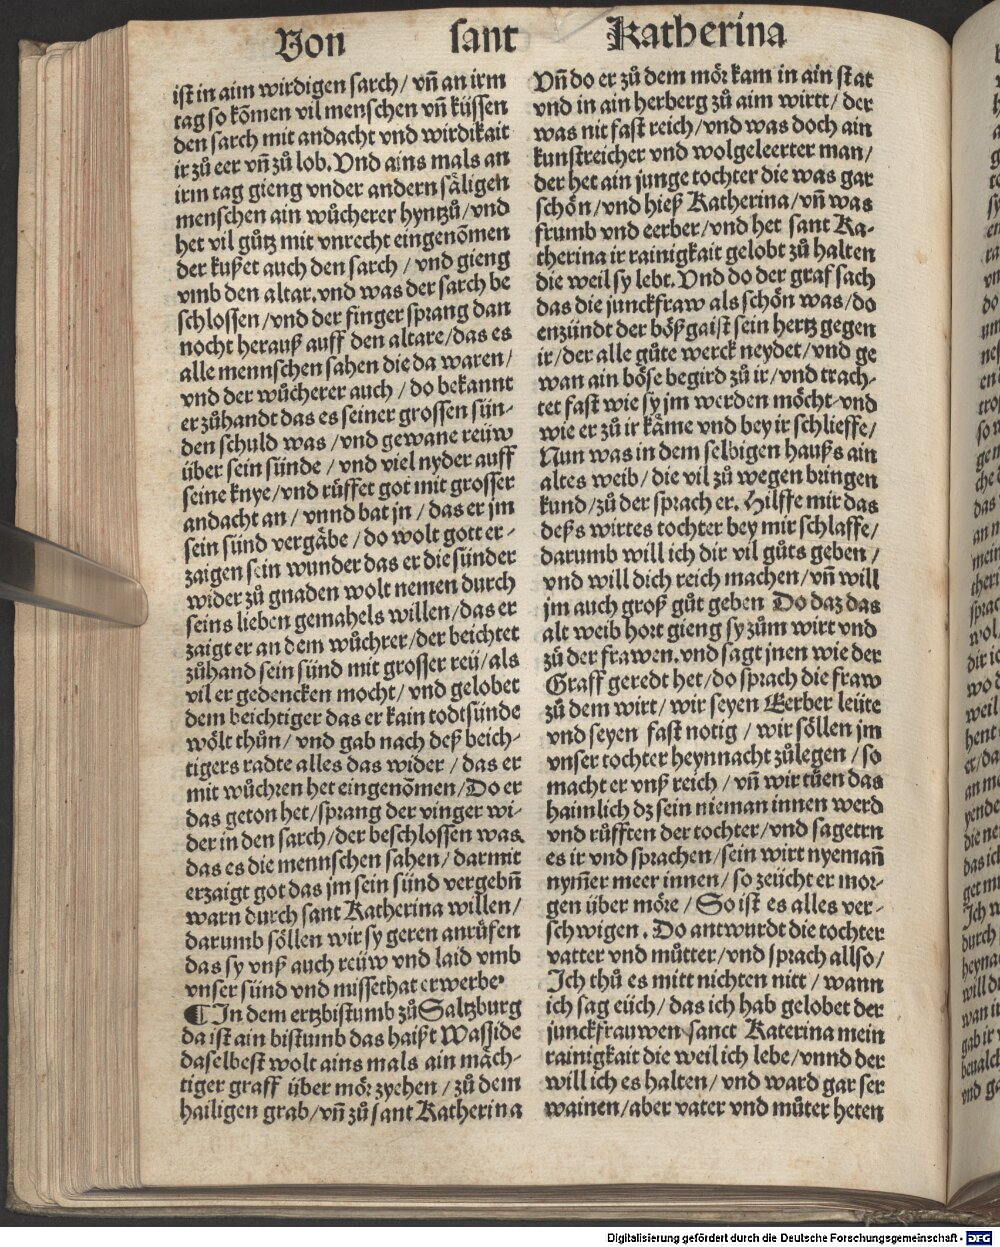 Von sant Katherina
ist in aim wirdigen sarch/ vn̄ an irm
tag so kōmen vil menschen vn̄ küssen
den sarch mit andacht vnd wirdikait
ir zů eer vn̄ zů lob. Vnd ains mals an
irm tag gieng vnder andern sāligen
menschen ain wůcherer hyntzů/ vnd
het vil gůtz mit vnrecht eingenōmen
der kußet auch den sarch / vnd gieng
vmb den altar. vnd was der sarch be
schlossen/ vnd der finger sprang dan
nocht herauß auff den altare/ das es
alle mennschen sahen die da waren/
vnd der wůcherer auch / do bekannt
er zůhandt das es seiner grossen sün-
den schuld was / vnd gewane reüw
über sein sünde / vnd viel nyder auff
seine knye/ vnd růffet got mit grosser
andacht an / vnnd bat jn / das er jm
sein sünd vergäbe / do wolt gott er-
zaigen sein wunder das er die sünder
wider zů gnaden wolt nemen durch
seins lieben gemahels willen/ das er
zaigt er an dem wůchrer/ der beichtet
zůhand sein sünd mit grosser reü/ als
vil er gedencken mocht/ vnd gelobet
dem beichtiger das er kain todtsünde
wölt thůn/ vnd gab nach deß beich-
tigers radte alles das wider / das er
mit wůchren het eingenōmen/ Do er
das geton het/ sprang der vinger wi-
der in den sarch/ der beschlossen was.
das es die mennschen sahen/ darmit
erzaigt got das jm sein sünd vergebn̄
warn durch sant Katherina willen/
darumb söllen wir sy geren anrůfen
das sy vnß auch reüw vnd laid vmb
vnser sünd vnd missethat erwerbe.
¶ In dem ertzbistumb zů Saltzburg
da ist ain bistumb das haißt Wasside
daselbest wolt ains mals ain mäch-
tiger graff über mör zyehen / zů dem
hailigen grab/ vn̄ zů sant Katherina
Vn̄ do er zů dem mör kam in ain stat
vnd in ain herberg zů aim wirtt/ der
was nit fast reich/ vnd was doch ain
kunstreicher vnd wolgeleerter man/
der het ain junge tochter die was gar
schön/ vnd hieß Katherina/ vn̄ was
frumb vnd eerber/ vnd het sant Ka-
therina ir rainigkait gelobt zů halten
die weil sy lebt. Vnd do der graf sach
das die junckfraw als schön was/ do
enzündt der bößgaist sein hertz gegen
ir/ der alle gůte werck neydet/ vnd ge
wan ain böse begird zů ir/ vnd trach-
tet fast wie sy jm werden möcht. vnd
wie er zů ir käme vnd bey ir schlieffe/
Nun was in dem selbigen haußs ain
altes weib/ die vil zů wegen bringen
kund/ zů der sprach er. Hilffe mir das
deßs wirtes tochter bey mir schlaffe/
darumb will ich dir vil gůts geben /
vnd will dich reich machen/ vn̄ will
jm auch groß gůt geben Do daz das
alt weib hort gieng sy zům wirt vnd
zů der frawen. vnd sagt jnen wie der
Graff geredt het/ do sprach die fraw
zů dem wirt/ wir seyen Eerber leüte
vnd seyen fast notig / wir söllen jm
vnser tochter heynnacht zůlegen / so
macht er vnß reich / vn̄ wir tüen das
haimlich dz sein nieman innen werd
vnd růfften der tochter/ vnd sagetrn
es ir vnd sprachen/ sein wirt nyeman̄
nym̄er meer innen/ so zeücht er mor-
gen über möre / So ist es alles ver-
schwigen. Do antwurdt die tochter
vatter vnd můtter/ vnd sprach allso/
Ich thů es mitt nichten nitt / wann
ich sag eüch/ das ich hab gelobet der
junckfrauwen sanct Katerina mein
rainigkait die weil ich lebe/ vnnd der
will ich es halten/ vnd ward gar ser
wainen/ aber vater vnd můter heten
Digitalisierung gefördert durch die Deutsche Forschungsgemeinschaft - DFG